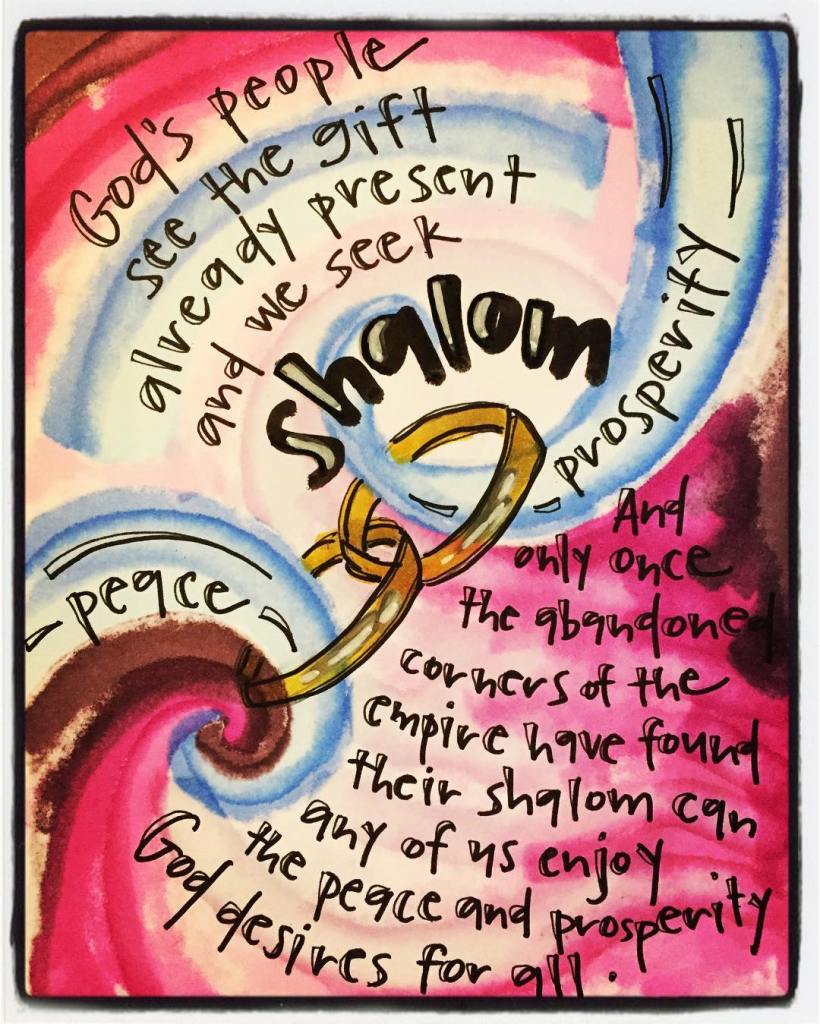 God's people
see the gift
already present
and we seek
shalom
prosperity
peace
And
only once
the abandoned
corners of the
empire have found
their shalom can
any of us enjoy
the peace and prosperity
God desires for all.